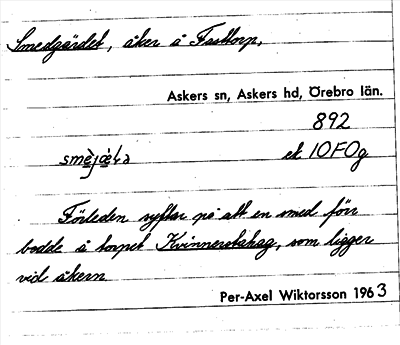 Smedgärdet, åker å Fasttorp,
Askers sn, Askers hd, Örebro län.
892
ek 10F0g
Förleden syftar på att en smed förr
bodde å torpet Kvinnerstahag, som ligger
vid åkern
Per-Axel Wiktorsson 1963